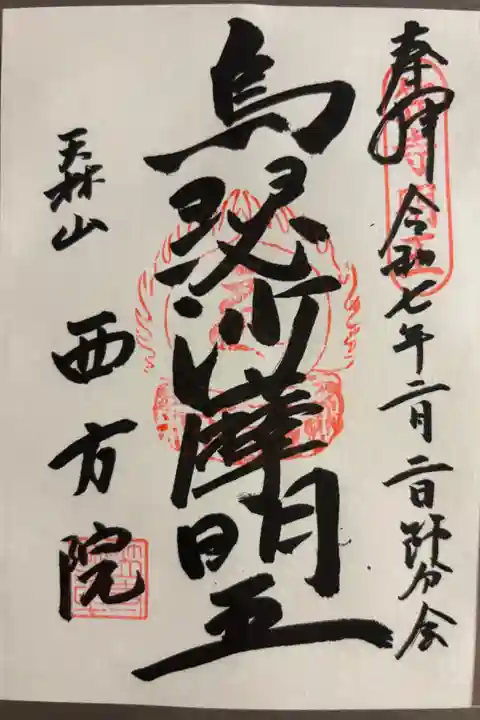 奉拝 令和七年二月二日 節分会
烏瑟沙摩明王
西方院